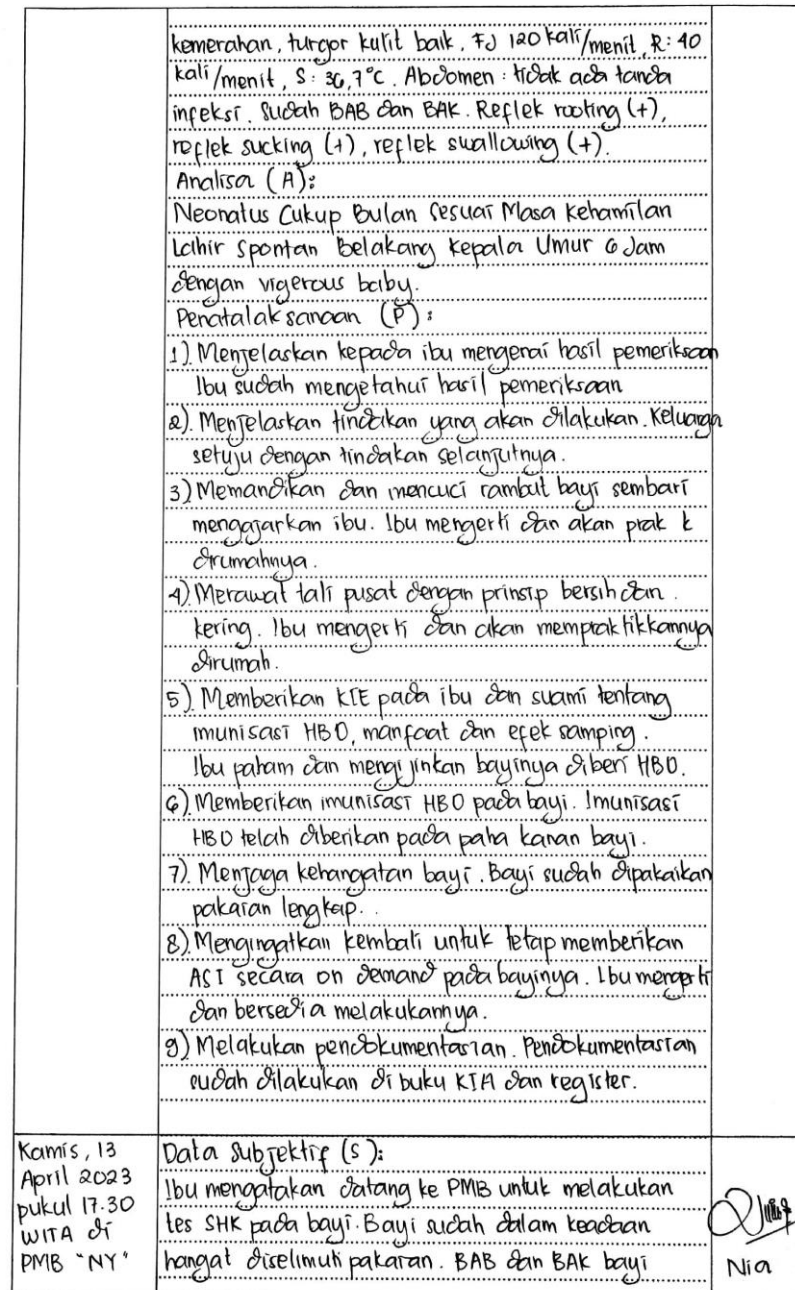 kemerahan, turgor kulit baik, FJ 120 kali/menit, R: 40
kali/menit, S: 36,7°C. Abdomen: tidak ada tanda
infeksi. Sudah BAB dan BAK. Reflek rooting (+),
reflek sucking (+), reflek swallowing (+).
Analisa (A):
Neonatus Cukup Bulan Sesuai Masa Kehamilan
Lahir Spontan Belakang Kepala Umur 6 Jam
dengan vigerous baby.
Penatalaksanaan (P):
1) Menjelaskan kepada ibu mengenai hasil pemeriksaan
Ibu sudah mengetahui hasil pemeriksaan
2) Menjelaskan tindakan yang akan dilakukan. Keluarga
setuju dengan tindakan selanjutnya.
3) Memandikan dan mencuci rambut bayi sembari
mengajarkan ibu. Ibu mengerti dan akan prak k
dirumahnya.
4) Merawat tali pusat dengan prinsip bersih dan.
kering. Ibu mengerti dan akan mempraktikkannya
dirumah.
5) Memberikan KIE pada ibu dan suami tentang
imunisasi HB0, manfaat dan efek samping.
Ibu paham dan mengijinkan bayinya diberi HB0.
6) Memberikan imunisasi HB0 pada bayi. Imunisasi
HB0 telah diberikan pada paha kanan bayi.
7) Menjaga kehangatan bayi. Bayi sudah dipakaikan
pakaian lengkap.
8) Mengingatkan kembali untuk tetap memberikan
ASI secara on demand pada bayinya. Ibu mengerti
dan bersedia melakukannya.
9) Melakukan pendokumentasian. Pendokumentasian
sudah dilakukan di buku KIA dan register.
Kamis, 13
April 2023
pukul 17.30
WITA di
PMB "NY"
Data Subjektif (S):
Ibu mengatakan datang ke PMB untuk melakukan
tes SHK pada bayi. Bayi sudah dalam keadaan
hangat diselimuti pakaian. BAB dan BAK bayi
Nia